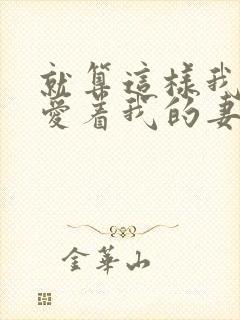 就算這樣我
愛着我的妻
金華山